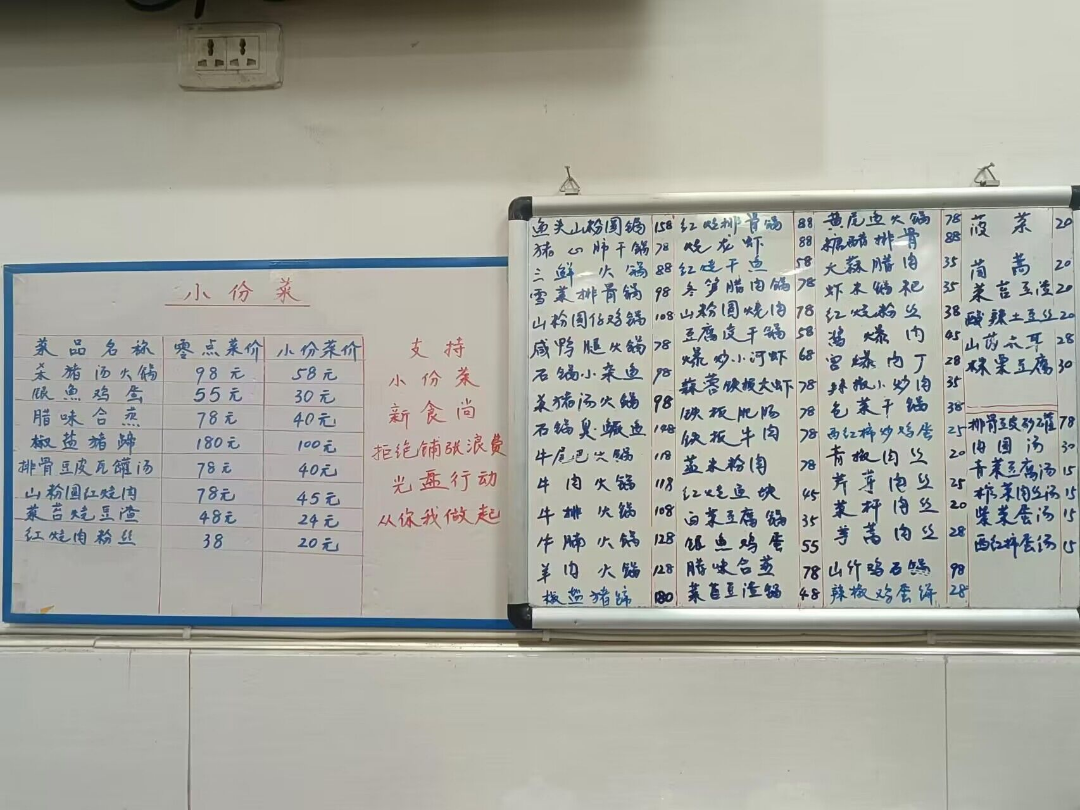 小份菜
菜品名称 零点菜价 小份菜价
杀猪汤火锅 98元 58元
银鱼鸡蛋 55元 30元
腊味合蒸 78元 40元
椒盐猪蹄 180元 100元
排骨豆皮瓦罐汤 78元 40元
山粉圆红烧肉 78元 45元
菜苔烧豆渣 48元 24元
红烧肉粉丝 38 20元
支持
小份菜
新食尚
拒绝铺张浪费
光盘行动
从你我做起
鱼头山粉圆锅 158
猪心肺干锅 78
三鲜火锅 88
雪菜排骨锅 98
山粉圆仔鸡锅 108
咸鸭腿火锅 78
石锅小杂鱼 98
杀猪汤火锅 98
石锅臭鳜鱼 128
牛尾巴火锅 118
牛肉火锅 118
牛排火锅 108
牛腩火锅 128
羊肉火锅 128
椒盐猪蹄 180
红烧排骨锅 88
烧龙虾 88
红烧干鱼 58
冬笋腊肉锅 78
山粉圆烧肉 78
豆腐皮干锅 58
爆炒小河虾 68
蒜蓉铁板大虾 78
铁板肥肠 78
铁板牛肉 78
蒸米粉肉 78
红烧鱼块 45
白菜豆腐锅 35
银鱼鸡蛋 55
腊味合蒸 78
菜苔豆渣锅 48
黄尾鱼火锅 78
糖醋排骨 88
大蒜腊肉 35
虾米锅杷 35
红烧粉丝 38
酱爆肉 45
宫爆肉丁 28
辣椒小炒肉 35
包菜干锅 38
西红柿炒鸡蛋 25
青椒肉丝 20
荠芽肉丝 25
菜秆肉丝 20
蒿肉丝 28
山竹鸡石锅 98
辣椒鸡蛋饼 28
菠菜 20
茼蒿 20
菜苔豆渣 20
酸辣土豆丝 20
山药木耳 28
栗豆腐 30
排骨豆皮砂罐 78
肉圆汤 30
青菜豆腐汤 15
榨菜肉丝汤 15
紫菜蛋汤 15
西红柿蛋汤 15